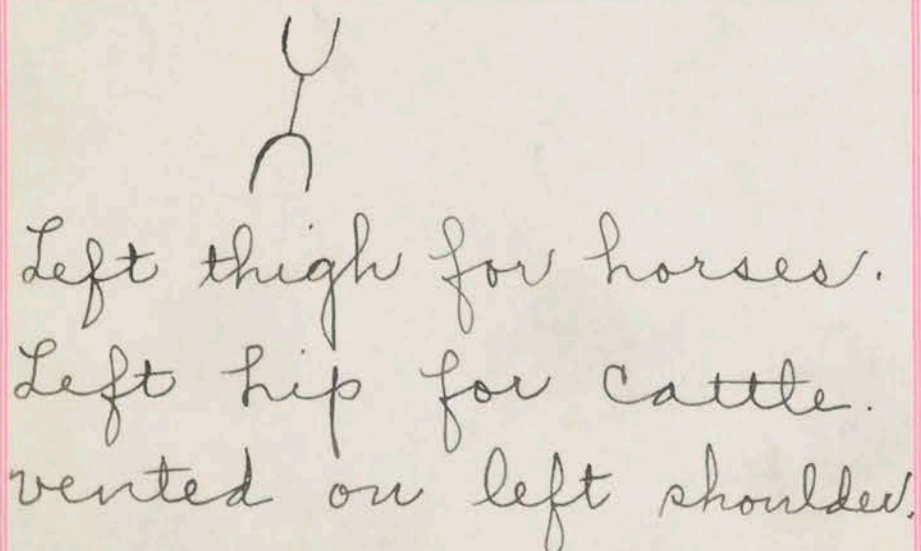 Left thigh for horses.
Left hip for Cattle.
vented on left shoulder.